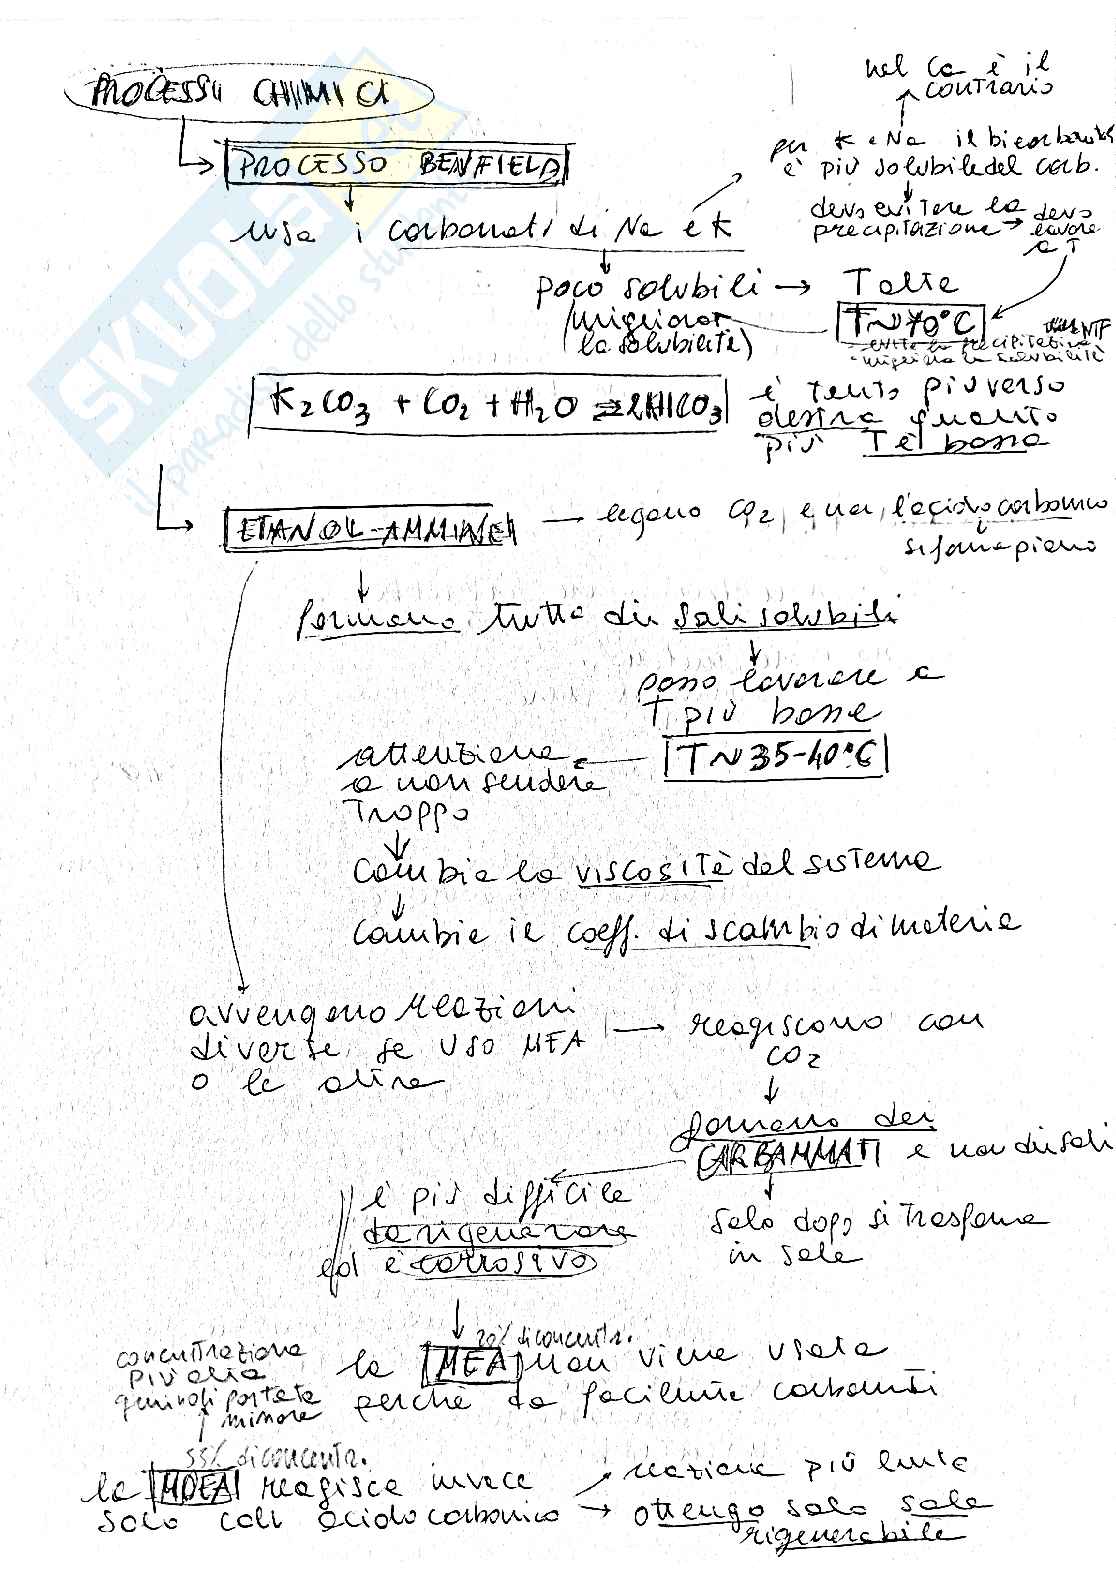 nel Ca è il
contrario
PROCESSI CHIMICI
per K e Na il bicarbonato
è più solubile del carb.
PROCESSO BENFIELD
devo evitare la
precipitazione → devo
lavore
a T
usa i carbonati di Na e K
poco solubili → T alte
(migliorar
la solubilità)
T~70°C
evito la precipitazione
migliora la solubilità
K2CO3 + CO2 + H2O ⇌ 2KHCO3
è tanto più verso
destra quanto
più T è bassa
ETANOL-AMMINE
→ legano CO2, e non l'acido carbonico
si forma piano
formano tutta di sali solubili
posso lavorare a
T più basse
T~35-40°C
attenzione
a non scendere
troppo
cambia la viscosità del sistema
cambia il coeff. di scambio di materia
avvengono reazioni
diverse se uso MEA
o le altre
→ reagiscono con
CO2
formano dei
CARBAMMATI e non dei sali
solo dopo si trasforma
in sale
è più difficile
da rigenerare
ed è corrosivo
20% di concentr.
la MEA non viene usata
perché dà facilmente carbamati
concentrazione
più alta
quindi portata
minore
55% di concentr.
la MDEA reagisce invece
solo con acido carbonico
→ reazione più lenta
→ ottengo solo sale
rigenerabile
SKUOLA.net
il paradiso dello studente